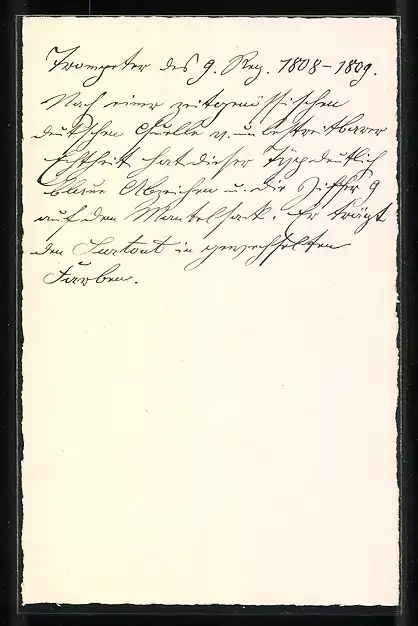 Trompeter des 9. Reg. 1808-1809.
Nach einer zeitgenössischen
deutschen Quelle v. unbestreitbarer
Echtheit hat dieser Typ deutlich
blaue Abzeichen u. die Ziffer 9
auf dem Mantelsack. Er trägt
den Surtout in gewechselten
Farben.